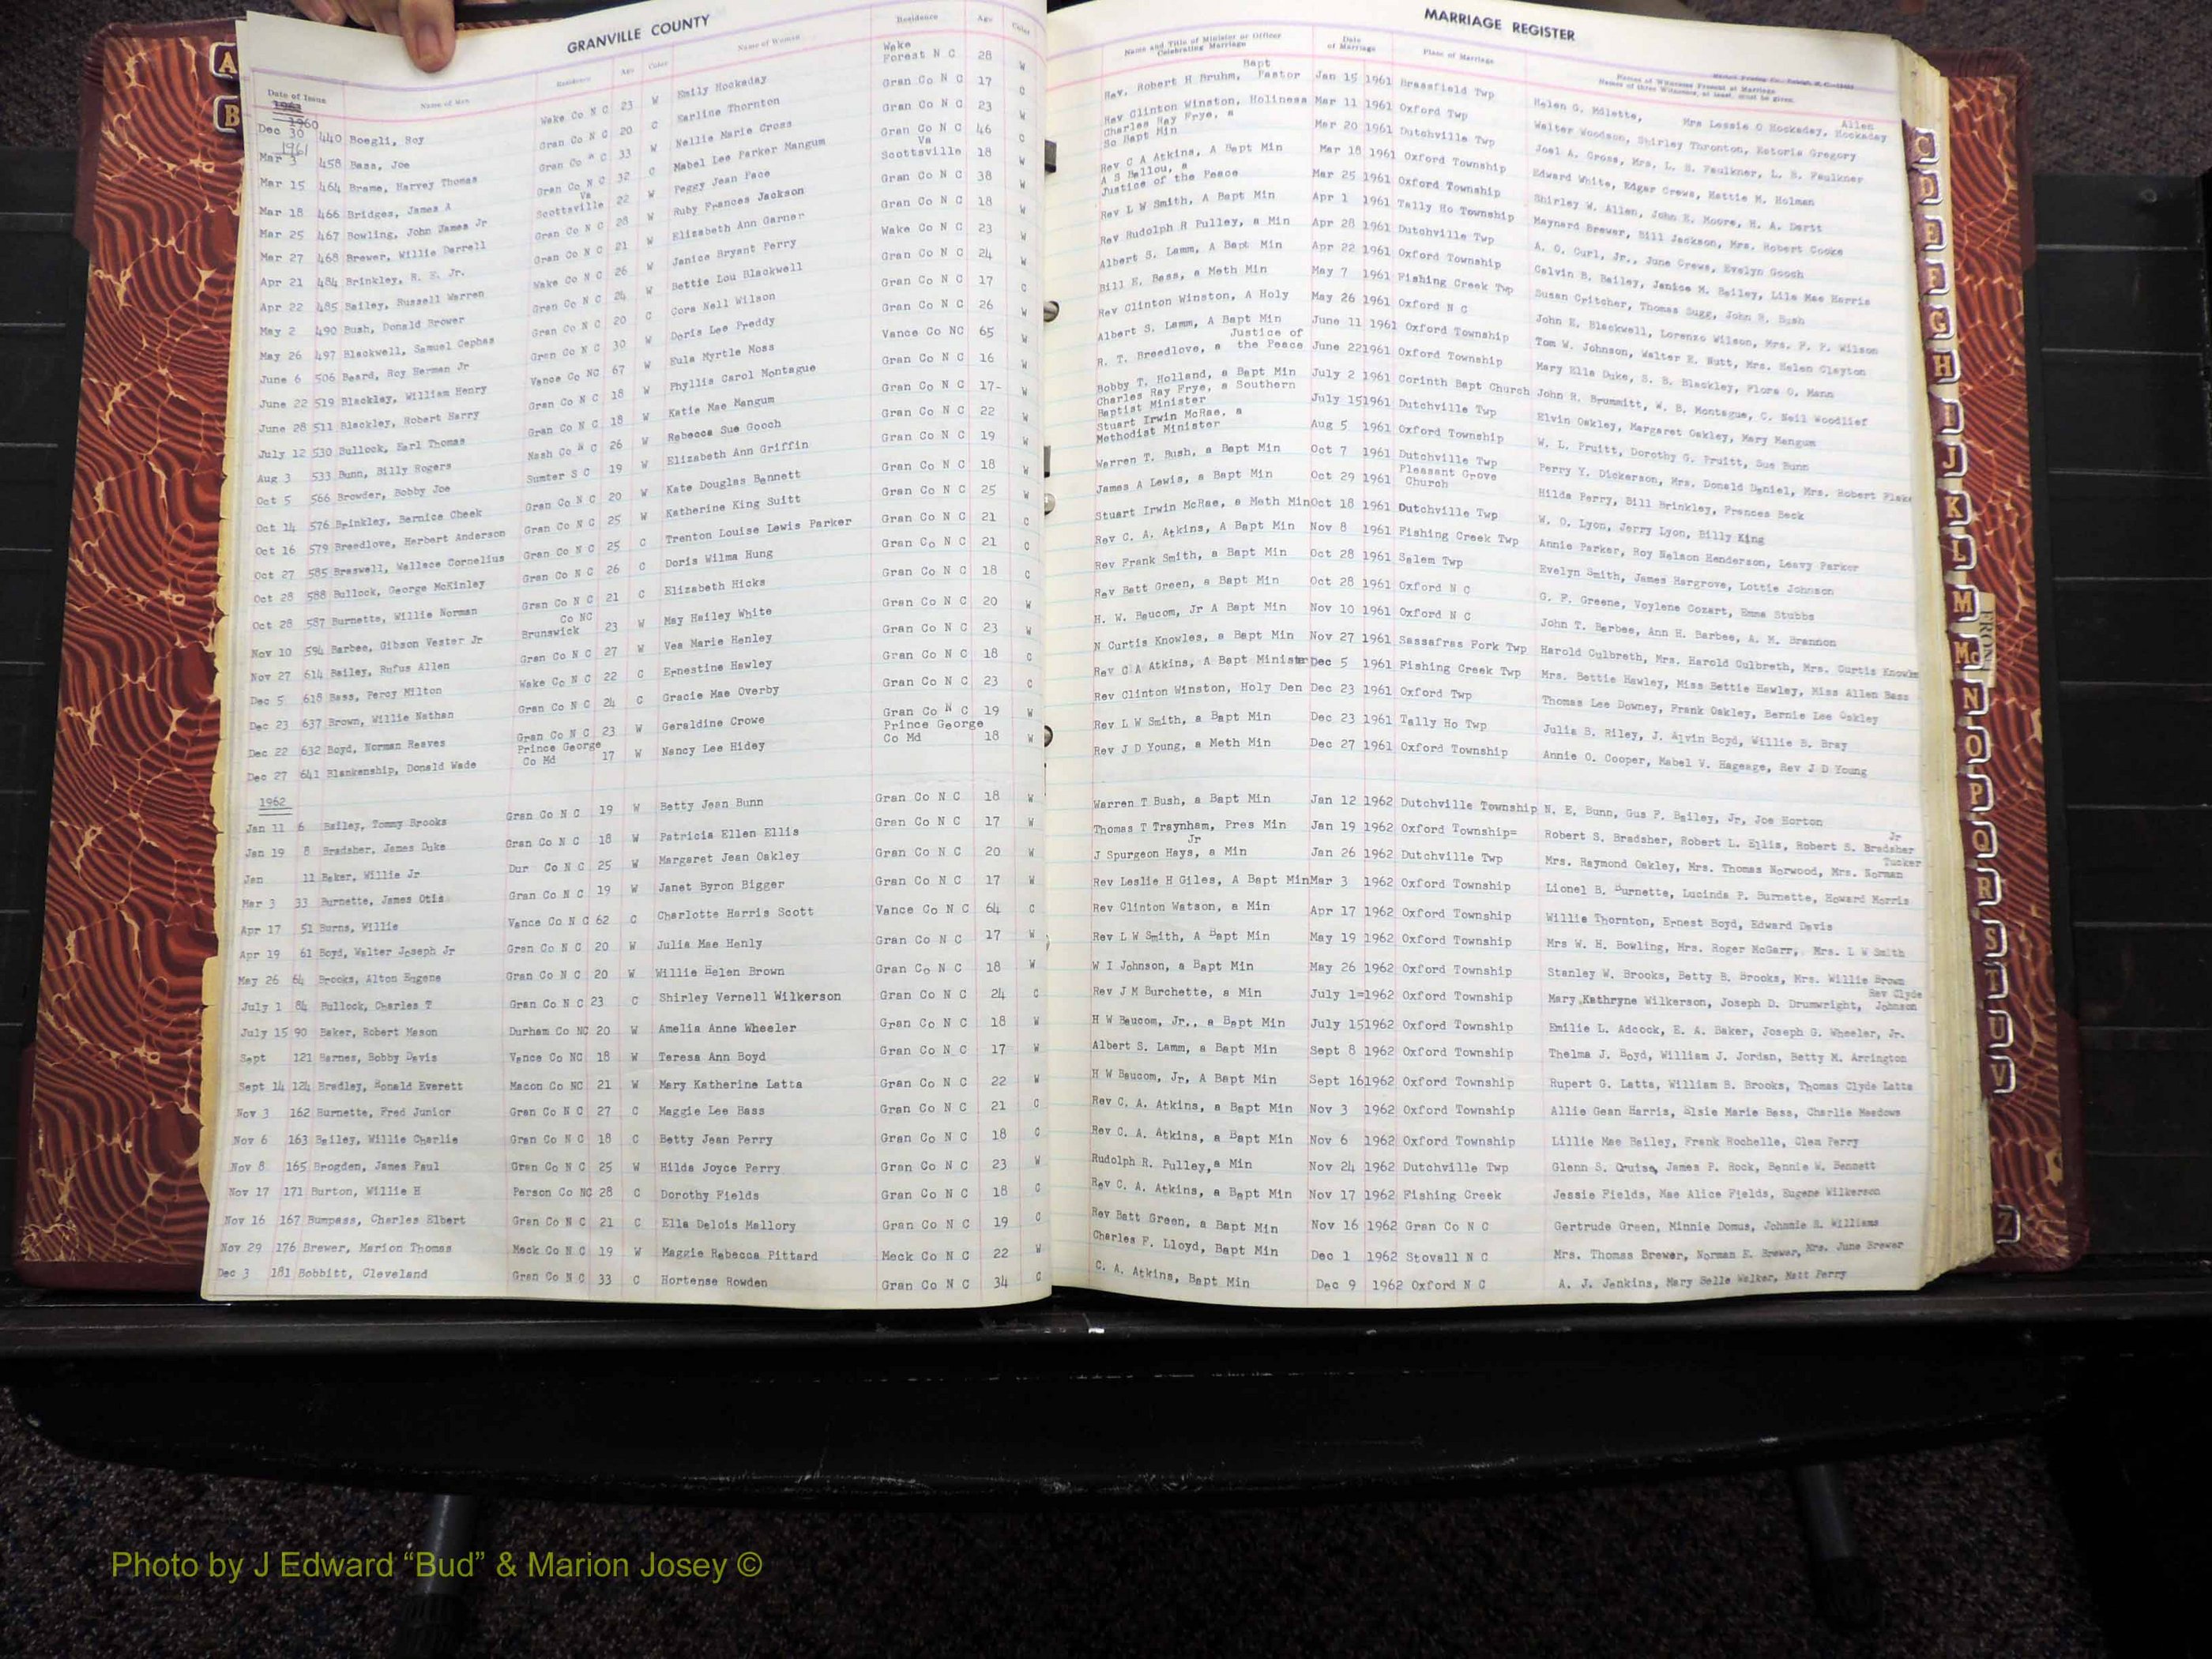 GRANVILLE COUNTY
MARRIAGE REGISTER
Date of Issue Name of Man Residence Age Color Name of Woman Residence Age Color Name and Title of Minister or Officer Celebrating Marriage Date of Marriage Place of Marriage Names of Witnesses Present at Marriage
Names of three Witnesses, at least, must be given.
1960
Dec 30 440 Boegli, Roy Wake Co N C 23 W Emily Hockaday Wake Forest N C 28 W Rev. Robert H Bruhm, Bapt Pastor Jan 15 1961 Brassfield Twp Helen G. Milette, Mrs Lessie O Hockaday, Allen Hockaday
1961
Mar 3 458 Bass, Joe Gran Co N C 20 C Earline Thornton Gran Co N C 17 C Rev Clinton Winston, Holiness Mar 11 1961 Oxford Twp Walter Woodson, Shirley Thronton, Estoria Gregory
Mar 15 464 Brame, Harvey Thomas Gran Co N C 33 W Nellie Marie Cross Gran Co N C 23 W Charles Ray Frye, a So Bapt Min Mar 20 1961 Dutchville Twp Joel A. Cross, Mrs. L. S. Faulkner, L. S. Faulkner
Mar 18 466 Bridges, James A Gran Co N C 32 C Mabel Lee Parker Mangum Gran Co N C 46 C Rev C A Atkins, A Bapt Min Mar 18 1961 Oxford Township Edward White, Edgar Crews, Hattie M. Holman
Mar 25 467 Bowling, John James Jr Va Scottsville 22 W Peggy Jean Pace Va Scottsville 18 W A S Ballou, a Justice of the Peace Mar 25 1961 Oxford Township Shirley W. Allen, John E. Moore, H. A. Dartt
Mar 27 468 Brewer, Willie Darrell Gran Co N C 28 W Ruby Frances Jackson Gran Co N C 38 W Rev L W Smith, A Bapt Min Apr 1 1961 Tally Ho Township Maynard Brewer, Bill Jackson, Mrs. Robert Cooke
Apr 21 484 Brinkley, R. E. Jr. Gran Co N C 21 W Elizabeth Ann Garner Gran Co N C 18 W Rev Rudolph R Pulley, a Min Apr 28 1961 Dutchville Twp A. O. Curl, Jr., June Crews, Evelyn Gooch
Apr 22 485 Bailey, Russell Warren Wake Co N C 26 W Janice Bryant Perry Wake Co N C 23 W Albert S. Lamm, A Bapt Min Apr 22 1961 Oxford Township Calvin B. Bailey, Janice M. Bailey, Lila Mae Harris
May 2 490 Bush, Donald Brower Gran Co N C 24 W Bettie Lou Blackwell Gran Co N C 24 W Bill E. Bass, a Meth Min May 7 1961 Fishing Creek Twp Susan Critcher, Thomas Sugg, John R. Bush
May 26 497 Blackwell, Samuel Cephas Gran Co N C 20 C Cora Nell Wilson Gran Co N C 17 C Rev Clinton Winston, A Holy May 26 1961 Oxford N C John E. Blackwell, Lorenzo Wilson, Mrs. P. P. Wilson
June 6 506 Beard, Roy Herman Jr Gran Co N C 30 W Doris Lee Preddy Gran Co N C 26 W Albert S. Lamm, A Bapt Min June 11 1961 Oxford Township Tom W. Johnson, Walter E. Nutt, Mrs. Helen Clayton
June 22 519 Blackley, William Henry Vance Co NC 67 W Eula Myrtle Moss Vance Co NC 65 W R. T. Breedlove, a Justice of the Peace June 221961 Oxford Township Mary Ella Duke, S. B. Blackley, Flora O. Mann
June 28 511 Blackley, Robert Harry Gran Co N C 18 W Phyllis Carol Montague Gran Co N C 16 W Bobby T. Holland, a Bapt Min July 2 1961 Corinth Bapt Church John R. Brummitt, W. B. Montague, C. Neil Woodlief
July 12 530 Bullock, Earl Thomas Gran Co N C 18 W Katie Mae Mangum Gran Co N C 17- W Charles Ray Frye, a Southern Baptist Minister July 151961 Dutchville Twp Elvin Oakley, Margaret Oakley, Mary Mangum
Aug 3 533 Bunn, Billy Rogers Nash Co N C 26 W Rebecca Sue Gooch Gran Co N C 22 W Stuart Irwin McRae, a Methodist Minister Aug 5 1961 Oxford Township W. L. Pruitt, Dorothy G. Pruitt, Sue Bunn
Oct 5 566 Browder, Bobby Joe Sumter S C 19 W Elizabeth Ann Griffin Gran Co N C 19 W Warren T. Bush, a Bapt Min Oct 7 1961 Dutchville Twp Perry Y. Dickerson, Mrs. Donald Daniel, Mrs. Robert Flake
Oct 14 576 Brinkley, Bernice Cheek Gran Co N C 20 W Kate Douglas Bennett Gran Co N C 18 W James A Lewis, a Bapt Min Oct 29 1961 Pleasant Grove Church Hilda Perry, Bill Brinkley, Frances Beck
Oct 16 579 Breedlove, Herbert Anderson Gran Co N C 25 W Katherine King Suitt Gran Co N C 25 W Stuart Irwin McRae, a Meth Min Oct 18 1961 Dutchville Twp W. O. Lyon, Jerry Lyon, Billy King
Oct 27 585 Braswell, Wallace Cornelius Gran Co N C 25 C Trenton Louise Lewis Parker Gran Co N C 21 C Rev C. A. Atkins, A Bapt Min Nov 8 1961 Fishing Creek Twp Annie Parker, Roy Nelson Henderson, Leavy Parker
Oct 28 588 Bullock, George McKinley Gran Co N C 26 C Doris Wilma Hung Gran Co N C 21 C Rev Frank Smith, a Bapt Min Oct 28 1961 Salem Twp Evelyn Smith, James Hargrove, Lottie Johnson
Oct 28 587 Burnette, Willie Norman Gran Co N C 21 C Elizabeth Hicks Gran Co N C 18 C Rev Batt Green, a Bapt Min Oct 28 1961 Oxford N C G. P. Greene, Voylene Cozart, Emma Stubbs
Nov 10 594 Barbee, Gibson Vester Jr Co NC Brunswick 23 W May Hailey White Gran Co N C 20 W H. W. Baucom, Jr A Bapt Min Nov 10 1961 Oxford N C John T. Barbee, Ann H. Barbee, A. M. Brannon
Nov 27 614 Bailey, Rufus Allen Gran Co N C 27 W Vea Marie Henley Gran Co N C 23 W N Curtis Knowles, a Bapt Min Nov 27 1961 Sassafras Fork Twp Harold Culbreth, Mrs. Harold Culbreth, Mrs. Curtis Knowles
Dec 5 618 Bass, Percy Milton Wake Co N C 22 C Ernestine Hawley Gran Co N C 18 C Rev C A Atkins, A Bapt Minister Dec 5 1961 Fishing Creek Twp Mrs. Bettie Hawley, Miss Bettie Hawley, Miss Allen Bass
Dec 23 637 Brown, Willie Nathan Gran Co N C 24 C Gracie Mae Overby Gran Co N C 23 C Rev Clinton Winston, Holy Den Dec 23 1961 Oxford Twp Thomas Lee Downey, Frank Oakley, Bernie Lee Oakley
Dec 22 632 Boyd, Norman Reaves Gran Co N C 23 W Geraldine Crowe Gran Co N C 19 W Rev L W Smith, a Bapt Min Dec 23 1961 Tally Ho Twp Julia B. Riley, J. Alvin Boyd, Willie B. Bray
Dec 27 641 Blankenship, Donald Wade Prince George Co Md 17 W Nancy Lee Hidey Prince George Co Md 18 W Rev J D Young, a Meth Min Dec 27 1961 Oxford Township Annie O. Cooper, Mabel V. Hageage, Rev J D Young
1962
Jan 11 6 Bailey, Tommy Brooks Gran Co N C 19 W Betty Jean Bunn Gran Co N C 18 W Warren T Bush, a Bapt Min Jan 12 1962 Dutchville Township N. E. Bunn, Gus F. Bailey, Jr, Joe Horton
Jan 19 8 Bradsher, James Duke Gran Co N C 18 W Patricia Ellen Ellis Gran Co N C 17 W Thomas T Traynham, Pres Min Jan 19 1962 Oxford Township= Robert S. Bradsher, Robert L. Ellis, Robert S. Bradsher Jr
Jan 11 Baker, Willie Jr Dur Co N C 25 W Margaret Jean Oakley Gran Co N C 20 W J Spurgeon Hays, Jr a Min Jan 26 1962 Dutchville Twp Mrs. Raymond Oakley, Mrs. Thomas Norwood, Mrs. Norman Tucker
Mar 3 33 Burnette, James Otis Gran Co N C 19 W Janet Byron Bigger Gran Co N C 17 W Rev Leslie H Giles, A Bapt Min Mar 3 1962 Oxford Township Lionel B. Burnette, Lucinda P. Burnette, Howard Morris
Apr 17 51 Burns, Willie Vance Co N C 62 C Charlotte Harris Scott Vance Co N C 64 C Rev Clinton Watson, a Min Apr 17 1962 Oxford Township Willie Thornton, Ernest Boyd, Edward Davis
Apr 19 61 Boyd, Walter Joseph Jr Gran Co N C 20 W Julia Mae Henly Gran Co N C 17 W Rev L W Smith, A Bapt Min May 19 1962 Oxford Township Mrs W. H. Bowling, Mrs. Roger McGarr, Mrs. L W Smith
May 26 64 Brooks, Alton Eugene Gran Co N C 20 W Willie Helen Brown Gran Co N C 18 W W I Johnson, a Bapt Min May 26 1962 Oxford Township Stanley W. Brooks, Betty B. Brooks, Mrs. Willie Brown
July 1 84 Bullock, Charles T Gran Co N C 23 C Shirley Vernell Wilkerson Gran Co N C 24 C Rev J M Burchette, a Min July 1=1962 Oxford Township Mary Kathryne Wilkerson, Joseph D. Drumwright, Rev Clyde Johnson
July 15 90 Baker, Robert Mason Durham Co NC 20 W Amelia Anne Wheeler Gran Co N C 18 W H W Baucom, Jr., a Bapt Min July 151962 Oxford Township Emilie L. Adcock, E. A. Baker, Joseph G. Wheeler, Jr.
Sept 121 Barnes, Bobby Davis Vance Co NC 18 W Teresa Ann Boyd Gran Co N C 17 W Albert S. Lamm, a Bapt Min Sept 8 1962 Oxford Township Thelma J. Boyd, William J. Jordan, Betty M. Arrington
Sept 14 124 Bradley, Ronald Everett Macon Co NC 21 W Mary Katherine Latta Gran Co N C 22 W H W Baucom, Jr, A Bapt Min Sept 161962 Oxford Township Rupert G. Latta, William B. Brooks, Thomas Clyde Latta
Nov 3 162 Burnette, Fred Junior Gran Co N C 27 C Maggie Lee Bass Gran Co N C 21 C Rev C. A. Atkins, a Bapt Min Nov 3 1962 Oxford Township Allie Gean Harris, Elsie Marie Bass, Charlie Meadows
Nov 6 163 Bailey, Willie Charlie Gran Co N C 18 C Betty Jean Perry Gran Co N C 18 C Rev C. A. Atkins, a Bapt Min Nov 6 1962 Oxford Township Lillie Mae Bailey, Frank Rochelle, Clem Perry
Nov 8 165 Brogden, James Paul Gran Co N C 25 W Hilda Joyce Perry Gran Co N C 23 W Rudolph R. Pulley, a Min Nov 24 1962 Dutchville Twp Glenn S. Cruise, James P. Rock, Bennie W. Bennett
Nov 17 171 Burton, Willie H Person Co NC 28 C Dorothy Fields Gran Co N C 18 C Rev C. A. Atkins, a Bapt Min Nov 17 1962 Fishing Creek Jessie Fields, Mae Alice Fields, Eugene Wilkerson
Nov 16 167 Bumpass, Charles Elbert Gran Co N C 21 C Ella Delois Mallory Gran Co N C 19 C Rev Batt Green, a Bapt Min Nov 16 1962 Gran Co N C Gertrude Green, Minnie Domus, Johnnie R. Williams
Nov 29 176 Brewer, Marion Thomas Meck Co N C 19 W Maggie Rebecca Pittard Meck Co N C 22 W Charles F. Lloyd, Bapt Min Dec 1 1962 Stovall N C Mrs. Thomas Brewer, Norman E. Brewer, Mrs. June Brewer
Dec 3 181 Bobbitt, Cleveland Gran Co N C 33 C Hortense Rowden Gran Co N C 34 C C. A. Atkins, Bapt Min Dec 9 1962 Oxford N C A. J. Jenkins, Mary Belle Walker, Matt Perry
A
B
C
D
E
F
G
H
I
J
K
L
M
Mc
N
O
P
Q
R
S
T
U
V
Z
FRON
Photo by J Edward “Bud” & Marion Josey ©